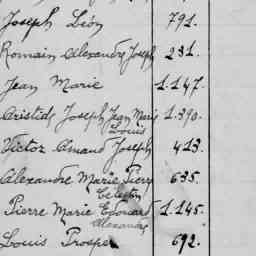 Joseph Léon 791.
Romain Alexandre Joseph 231.
Jean Marie 1.147.
Aristide Joseph Jean Marie 1.390.
Louis
Victor Amand Joseph 413.
Alexandre Marie Pierre 635.
Célestin
Pierre Marie Edouard 1.145.
Alexandre
Louis Prosper 692.